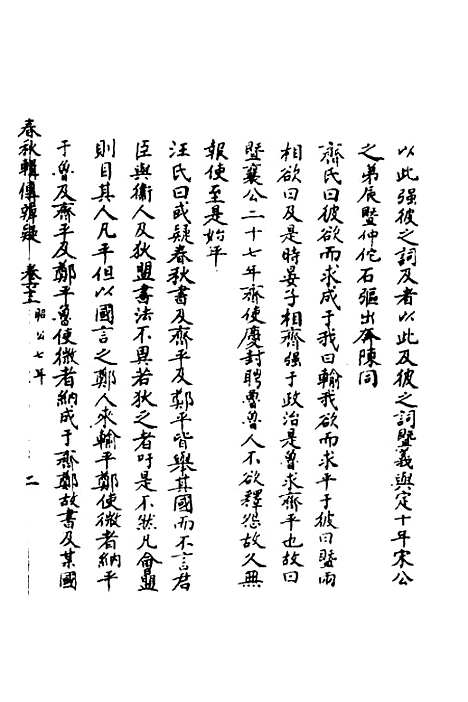 以此强彼之詞及者以此及彼之詞暨義與定十年宋公
之弟辰暨仲佗石彄出奔陳同
齊氏曰彼欲而求成于我曰輸我欲而求平于彼曰暨兩
相欲曰及是時晏子相齊强于政治是魯求齊平也故曰
暨襄公二十七年齊使慶封聘魯魯人不欲釋怨故久無
報使至是始平
汪氏曰或疑春秋書及齊平及鄭平皆舉其國而不言君
臣與衛人及狄盟書法不異若狄之者吁是不然凡會盟
則目其人凡平但以國言之鄭人來輸平鄭使微者納平
于魯及齊平及鄭平魯使微者納成于齊鄭故書及某國
春秋輯傳辨疑 卷六十三 昭公七年 二